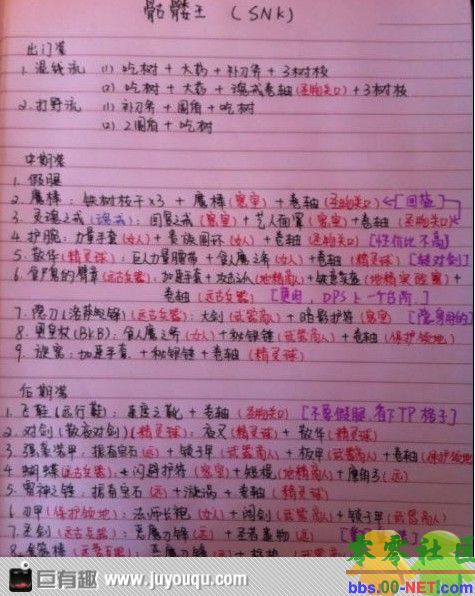 骷髅王 (SNK)
出门准
1. 混线流 (1) 吃树 + 大药 + 补刀斧 + 3树枝
(2) 吃树 + 大药 + 魂戒卷轴 (圣物关口) + 3树枝
2. 打野流 (1) 补刀斧 + 圆盾 + 吃树
(2) 2圆盾 + 吃树
中期准
1. 假腿
2. 魔棒: 铁树枝干x3 + 魔棒 (密室) + 卷轴 (圣物关口) [回蓝]
3. 灵魂之戒 (魂戒): 回复之戒 (密室) + 艺人面罩 (密室) + 卷轴 (圣物关口)
4. 护腕: 力量手套 (女人) + 贵族圆环 (女人) + 卷轴 (圣物关口) [性价比不高]
5. 散华 (精灵球): 巨人力量腰带 + 食人魔之斧 (女人) + 卷轴 (精灵球) [转对剑]
6. 食尸鬼的臂章 (远古兵器): 加速手套 + 攻击之爪 (地精商人) + 铁意头盔 (地精实验室) +
卷轴 (远古兵器) [ , DPS上一个台阶. ]
7. 隐刀 (洛萨之锋) (远古兵器): 大剑 (武器商人) + 暗影护符 (密室) [隐身用的]
8. 黑皇杖 (BKB): 食人魔之斧 (女人) + 秘银锤 (武器商人) + 卷轴 (保护领地)
9. 旋雾: 加速手套 + 秘银锤 + 卷轴 (精灵球)
后期准
1. 飞鞋 (远行鞋): 速度之靴 + 卷轴 (圣物关口) [不要假腿, 省下TP格子]
2. 对剑 (散夜对剑) (精灵球): 夜叉 (精灵球) + 散华 (精灵球)
3. 强袭装甲: 振奋宝石 (远) + 锁子甲 (武器商人) + 板甲 (武器商人) + 卷轴 (保护领地)
4. 蝴蝶 (远古兵器): 闪避护符 (密室) + 短棍 (地精商人) + 鹰角弓 (远)
5. 雷神之锤: 振奋宝石 (远) + 漩涡 + 卷轴 (精灵球)
6. 刃甲 (保护领地): 法师长袍 (女人) + 阔剑 (武器商人) + 锁子甲 (武器商人)
7. 圣剑 (远古兵器): 恶魔刀锋 (远) + 圣者遗物 (远)
8. 金箍棒 (远古兵器): 恶魔刀锋 (远) + (武器商人)
巨有趣 www.juyouqu.com
寒零社区
bbs.00-NET.com